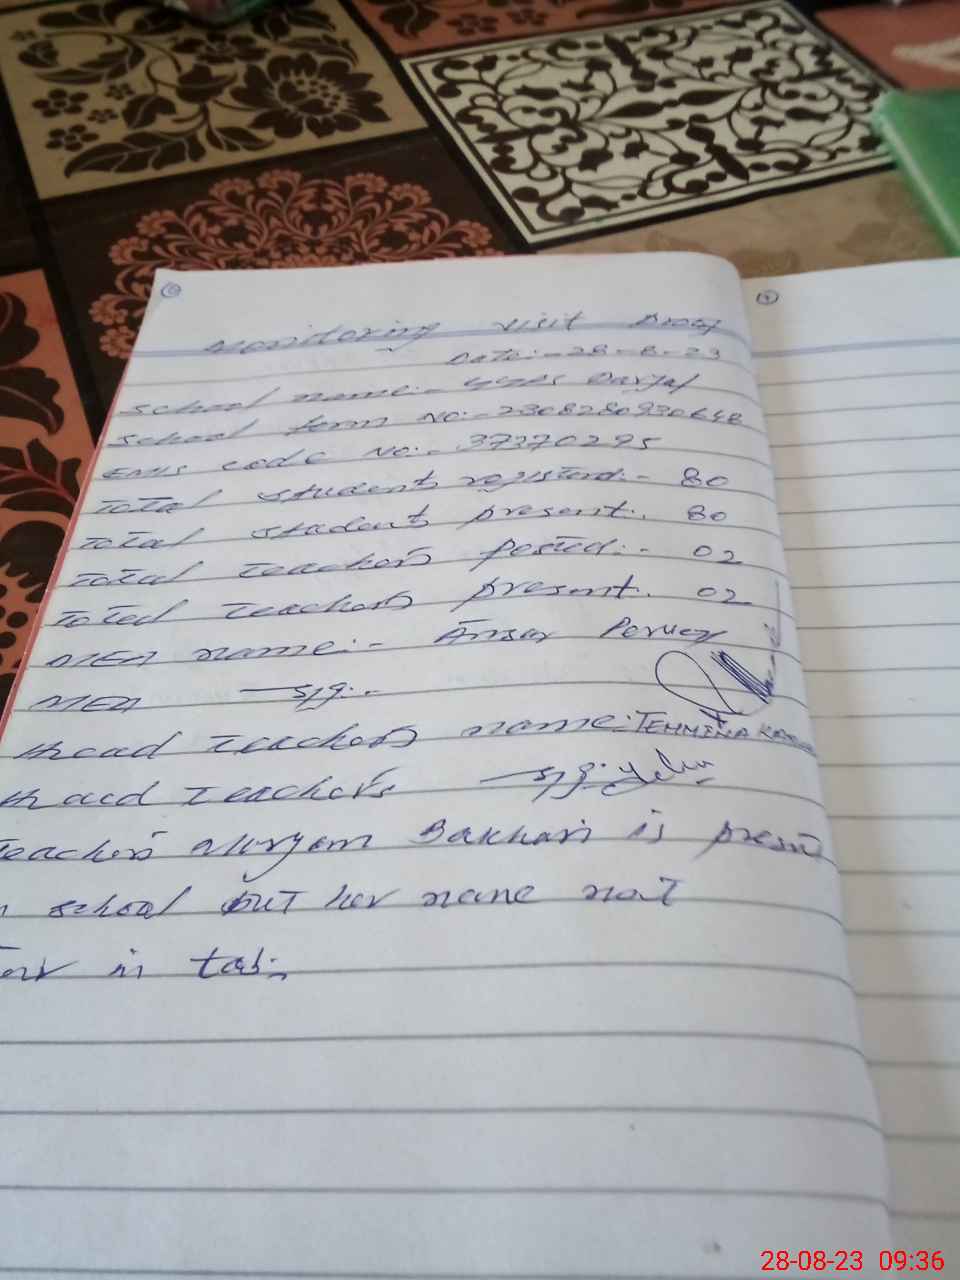 Monitoring visit Proof
Date:- 28-8-23
School name:- GGPS Darjal
School form No:- 2308280930648
EMIS code No:- 37370295
Total student registerd:- 80
Total student present:- 80
Total teachers posted:- 02
Total teachers present:- 02
MEA name:- Ansar Pervez
MEA sig:-
Head teachers name:- TEHMINA
Head teachers sig:-
Teachers Maryam Bakhari is present
school but her name not
in tab:-
28-08-23 09:36